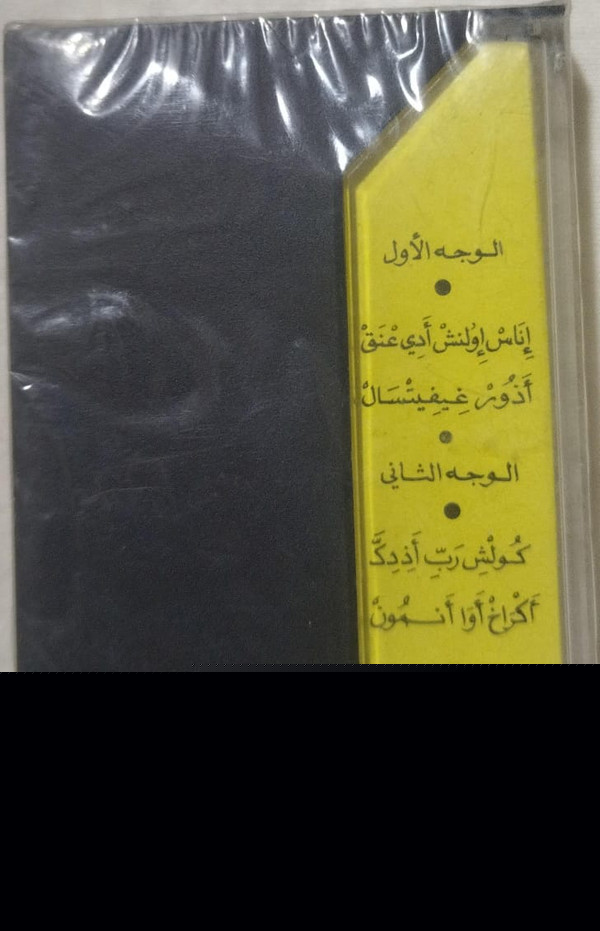 الوجه الأول
إِنَاسْ إِوُلنشْ أَدِي عْنَقْ
أَذْوُرْ غِيفِيتْسَالْ
الوجه الثاني
كُولْشِ رَبِّ أَذِدِكَّ
أَكْرَاخْ أَوَا أَنمُونْ